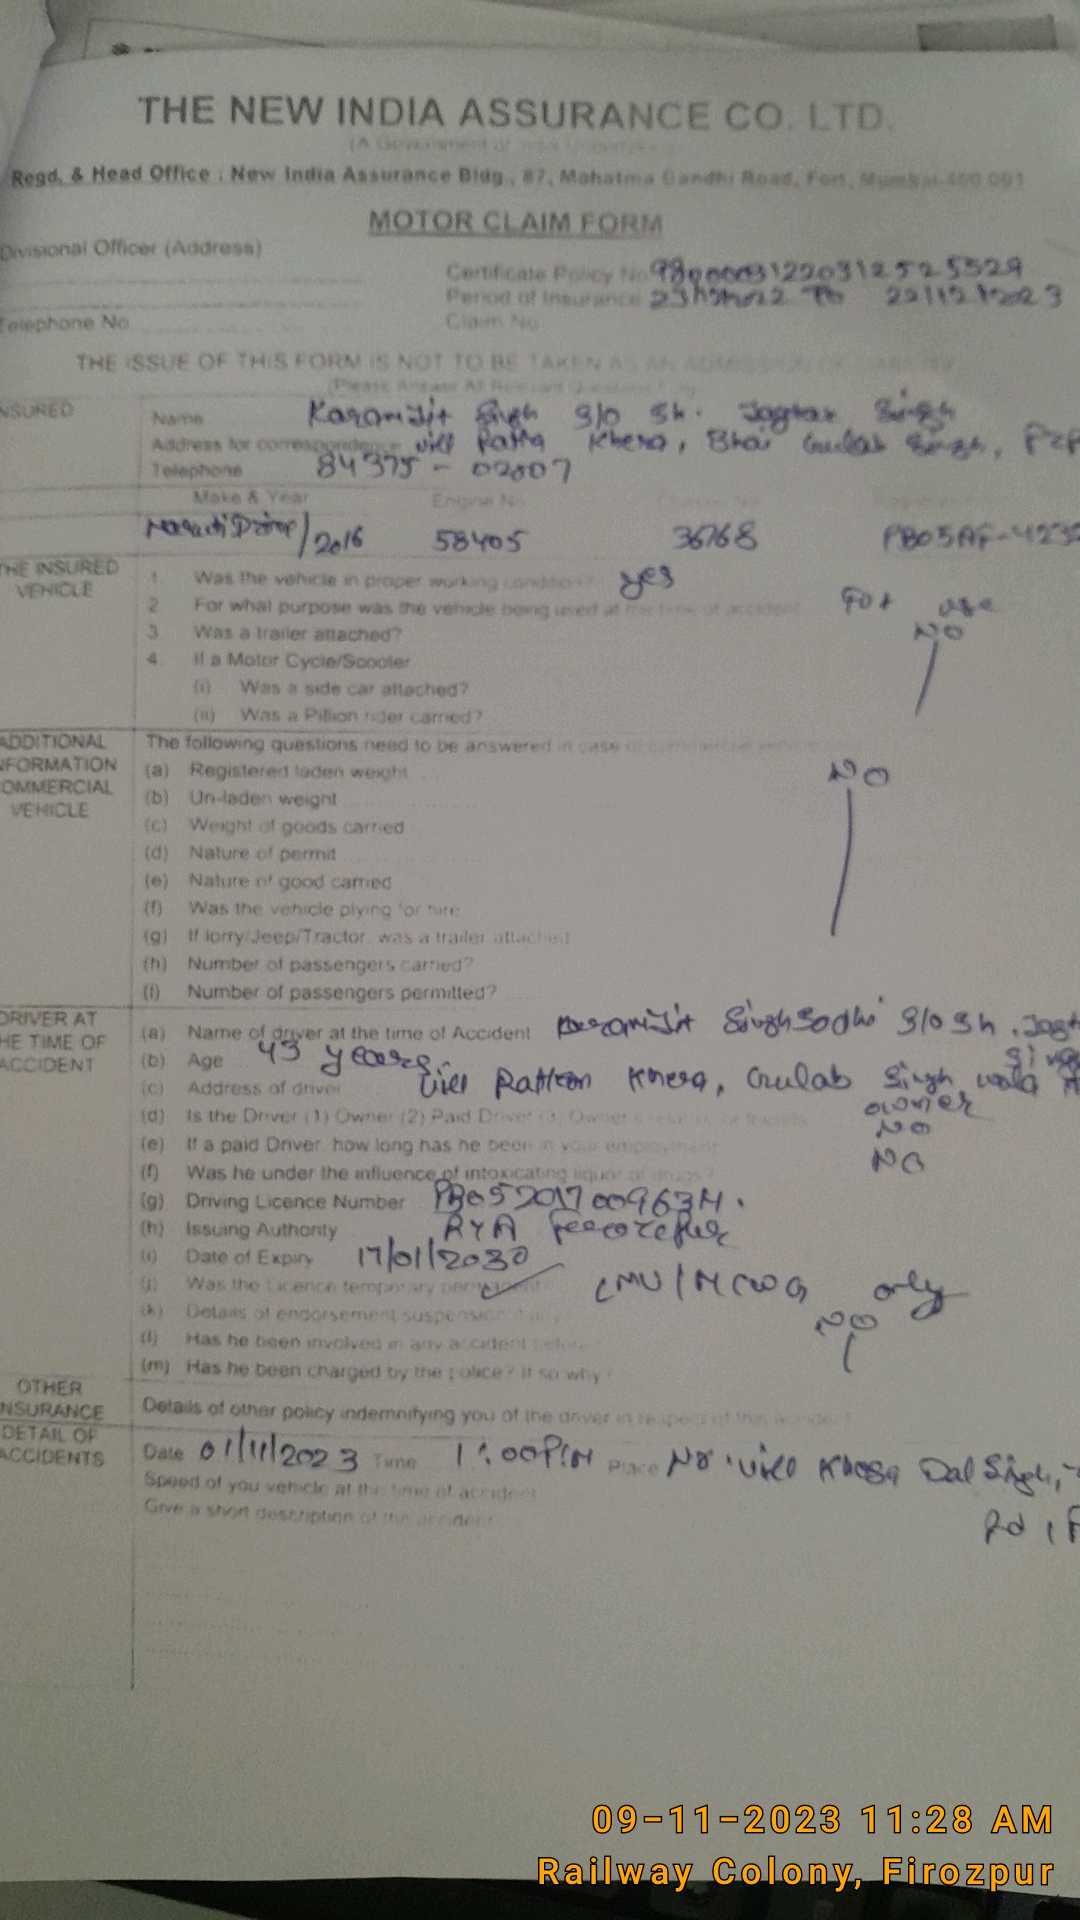 THE NEW INDIA ASSURANCE CO. LTD.
(A Government of India Undertaking)
Regd. & Head Office : New India Assurance Bldg., 87, Mahatma Gandhi Road, Fort, Mumbai-400 001
MOTOR CLAIM FORM
Divisional Officer (Address)
Certificate Policy No 98000031220312525529
Period of Insurance 23/12/2022 To 22/12/2023
Telephone No
Claim No
THE ISSUE OF THIS FORM IS NOT TO BE TAKEN AS AN ADMISSION OF LIABILITY
(Please Answer All Relevant Questions
INSURED
Name Karamjit Singh S/o Sh. Jagtar Singh
Address for correspondence Vill Khera, Bhai Gulab Singh,
Telephone 84375-02807
Make & Year Engine No
Maruti /2016 58405 36768 PB05AF-4232
THE INSURED VEHICLE
1. Was the vehicle in proper working condition? yes
2 For what purpose was the vehicle being used at the time of accident For use
3 Was a trailer attached? NO
4. If a Motor Cycle/Scooter
(i) Was a side car attached?
(ii) Was a Pillion rider carried?
ADDITIONAL INFORMATION COMMERCIAL VEHICLE
The following questions need to be answered in case of commercial vehicle
(a) Registered laden weight NO
(b) Un-laden weight
(c) Weight of goods carried
(d) Nature of permit
(e) Nature of good carried
(f) Was the vehicle plying for hire
(g) If lorry/Jeep/Tractor, was a trailer attached
(h) Number of passengers carried?
(i) Number of passengers permitted?
DRIVER AT THE TIME OF ACCIDENT
(a) Name of driver at the time of Accident Karamjit Singh Sodhi S/o Sh. Singh
(b) Age 43 years
(c) Address of driver Vill Rattan Khera, Gulab Singh wala
(d) Is the Driver (1) Owner (2) Paid Driver (3) Owner's relative or friends owner
(e) If a paid Driver, how long has he been in your employment NO
(f) Was he under the influence of intoxicating liquor or drugs? NO
(g) Driving Licence Number PB0520170096314.
(h) Issuing Authority Ferozepur
(i) Date of Expiry 17/01/2030
(j) Was the Licence temporary permanent LMV/MCWG only
(k) Details of endorsement suspension if any NO
(l) Has he been involved in any accident before
(m) Has he been charged by the police? If so why?
OTHER INSURANCE
Details of other policy indemnifying you of the driver in respect of this accident
DETAIL OF ACCIDENTS
Date 01/11/2023 Time 1:00PM Place Nr. Vill Khosa Dal Singh,
Rd,
Speed of you vehicle at the time of accident
Give a short description of the accident
09-11-2023 11:28 AM
Railway Colony, Firozpur